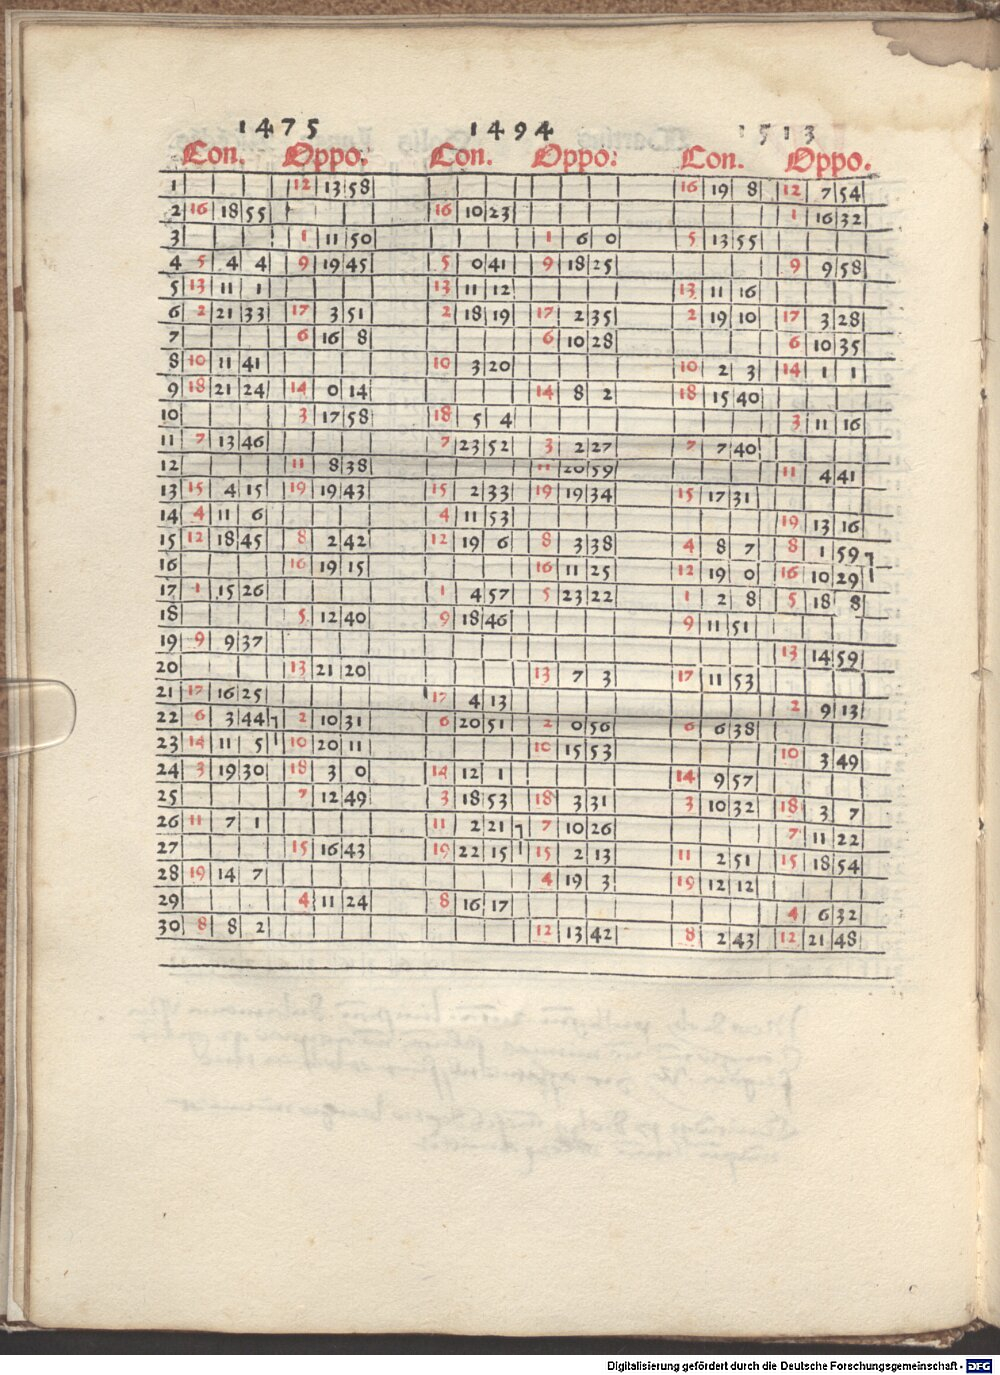 1475 1494 1513
Con. Oppo. Con. Oppo: Con. Oppo.
1 12 13 58 16 19 8 12 7 54
2 16 18 55 16 10 23 1 16 32
3 1 11 50 1 6 0 5 13 55
4 5 4 4 9 19 45 5 0 41 9 18 25 9 9 58
5 13 11 1 13 11 12 13 11 16
6 2 21 33 17 3 51 2 18 19 17 2 35 2 19 10 17 3 28
7 6 16 8 6 10 28 6 10 35
8 10 11 41 10 3 20 10 2 3 14 1 1
9 18 21 24 14 0 14 14 8 2 18 15 40
10 3 17 58 18 5 4 3 11 16
11 7 13 46 7 23 52 3 2 27 7 7 40
12 11 8 38 11 20 59 11 4 41
13 15 4 15 19 19 43 15 2 33 19 19 34 15 17 31
14 4 11 6 4 11 53 19 13 16
15 12 18 45 8 2 42 12 19 6 8 3 38 4 8 7 8 1 59
16 16 19 15 16 11 25 12 19 0 16 10 29
17 1 15 26 1 4 57 5 23 22 1 2 8 5 18 8
18 5 12 40 9 18 46 9 11 51
19 9 9 37 13 14 59
20 13 21 20 13 7 3 17 11 53
21 17 16 25 17 4 13 2 9 13
22 6 3 44 2 10 31 6 20 51 2 0 56 6 6 38
23 14 11 5 10 20 11 10 15 53 10 3 49
24 3 19 30 18 3 0 14 12 1 14 9 57
25 7 12 49 3 18 53 18 3 31 3 10 32 18 3 7
26 11 7 1 11 2 21 7 10 26 7 11 22
27 15 16 43 19 22 15 15 2 13 11 2 51 15 18 54
28 19 14 7 4 19 3 19 12 12
29 4 11 24 8 16 17 4 6 32
30 8 8 2 12 13 42 8 2 43 12 21 48
Digitalisierung gefördert durch die Deutsche Forschungsgemeinschaft - DFG